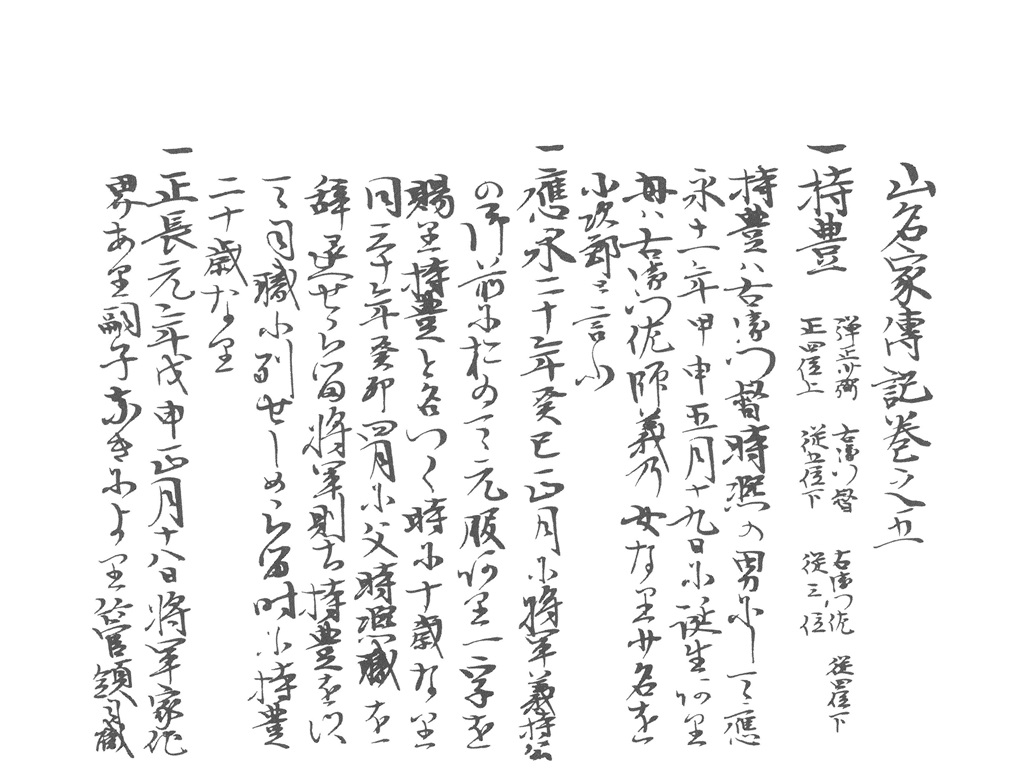 山名家傳記巻之五
一持豊
弾正少弼 右衛門督 右衛門佐 従四位下
正四位上 従五位下 従三位
持豊ハ右衛門督時熈の男にして應
永十一年甲申五月十九日に誕生あり
母ハ右衛門佐師義乃女なり廿名を
小次郎と言ふ
一應永二十年癸巳正月に将軍義持公
の御前におゐて元服あり一字を
賜り持豊と名つく時に十歳なり
同三十年癸卯四月に父時熈職を
辞退せらる将軍則ち持豊を以
て司職に列せしめらる時に持豊
二十歳なり
一正長元年戊申正月十八日将軍家他
界あり嗣子なきにより管領